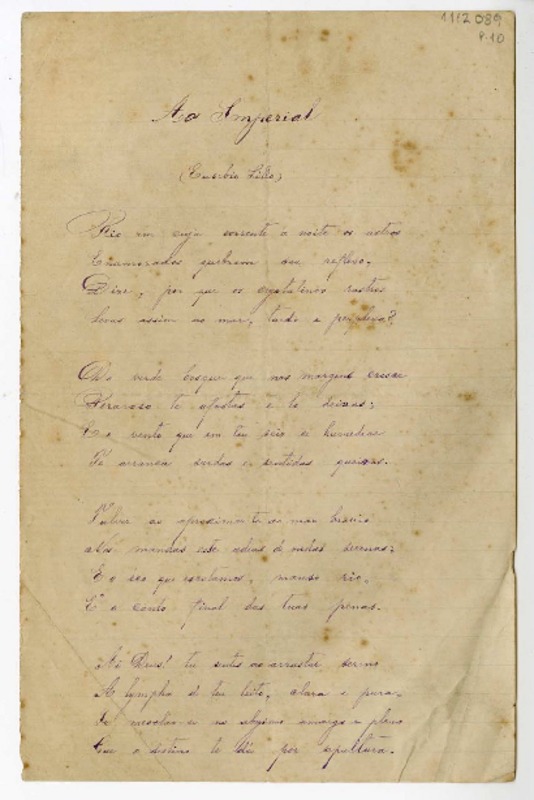 1112089
P.10
Ao Imperial
(Eusebio Lillo)
Rio em cuja corrente á noite os astros
Enamorados quebram seu reflexo,
Dize, por que os crystalinos rastros
levas assim ao mar, tardo e perplexo?
Do verde bosque que nas margens cresce
te afastas e te deixas;
E o vento que em teu seio se humedece
Te arranca surdas e sentidas queixas.
ao aproximar-te ao mar
E o que escutamos, manso rio,
É o canto final das tuas penas.
Ai Deus! tu sentes ao arrastar
A lympha d teu leito, clara e pura,
no abysmo amargo e pleno
Que o destino te dá por sepultura.